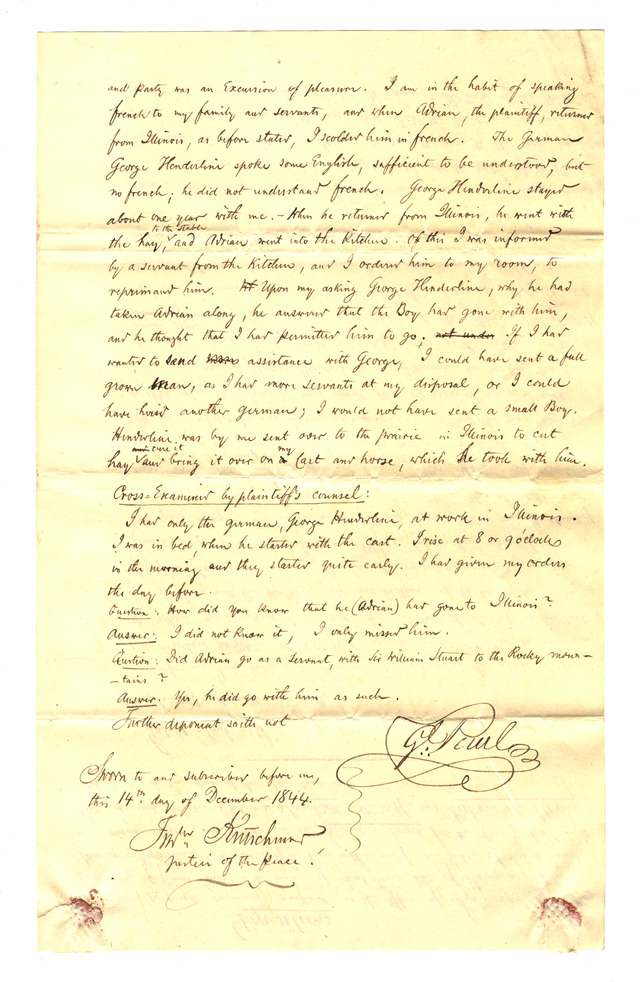 and Party was an Excursion of pleasure. I am in the habit of speaking
french to my family and servants, and when Adrian, the plaintiff, returned
from Illinois, as before stated, I scolded him in french. The German
George Henderline spoke some English, sufficient to be understood, but
no french; he did not understand french. George Hinderline stayed
about one year with me. - When he returned from Illinois, he went with
to the stable
the hay, and Adrian went into the Kitchen. Of this I was informed
by a servant from the Kitchen, and I ordered him to my room, to
reprimand him. Upon my asking George Hinderline, why he had
taken Adrian along, he answered that the Boy had gone with him,
and he thought that I had permitted him to go; not under If I had
wanted to send assistance with George, I could have sent a full
grown Man, as I had more servants at my disposal, or I could
have hired another german; I would not have sent a small Boy.
Hinderline was by me sent over to the prairie in Illinois to cut
cure it my
hay and bring it over on Cart and horse, which he took with him.
Cross-Examined by plaintiff's counsel:
I had only the german, George Hinderline, at work in Illinois.
I was in bed, when he started with the cart. I rise at 8 or 9 o'clock
in the morning and they started quite early. I had given my orders
the day before.
Question: How did you know that he (Adrian) had gone to Illinois?
Answer: I did not know it, I only missed him.
Question: Did Adrian go as a servant, with Sir William Stuart to the Rocky moun-
-tains?
Answer. Yes, he did go with him as such.
Further deponent saith not
G. Paul
Sworn to and subscribed before me,
this 14th day of December 1844.
Kretschmar
justice of the peace.